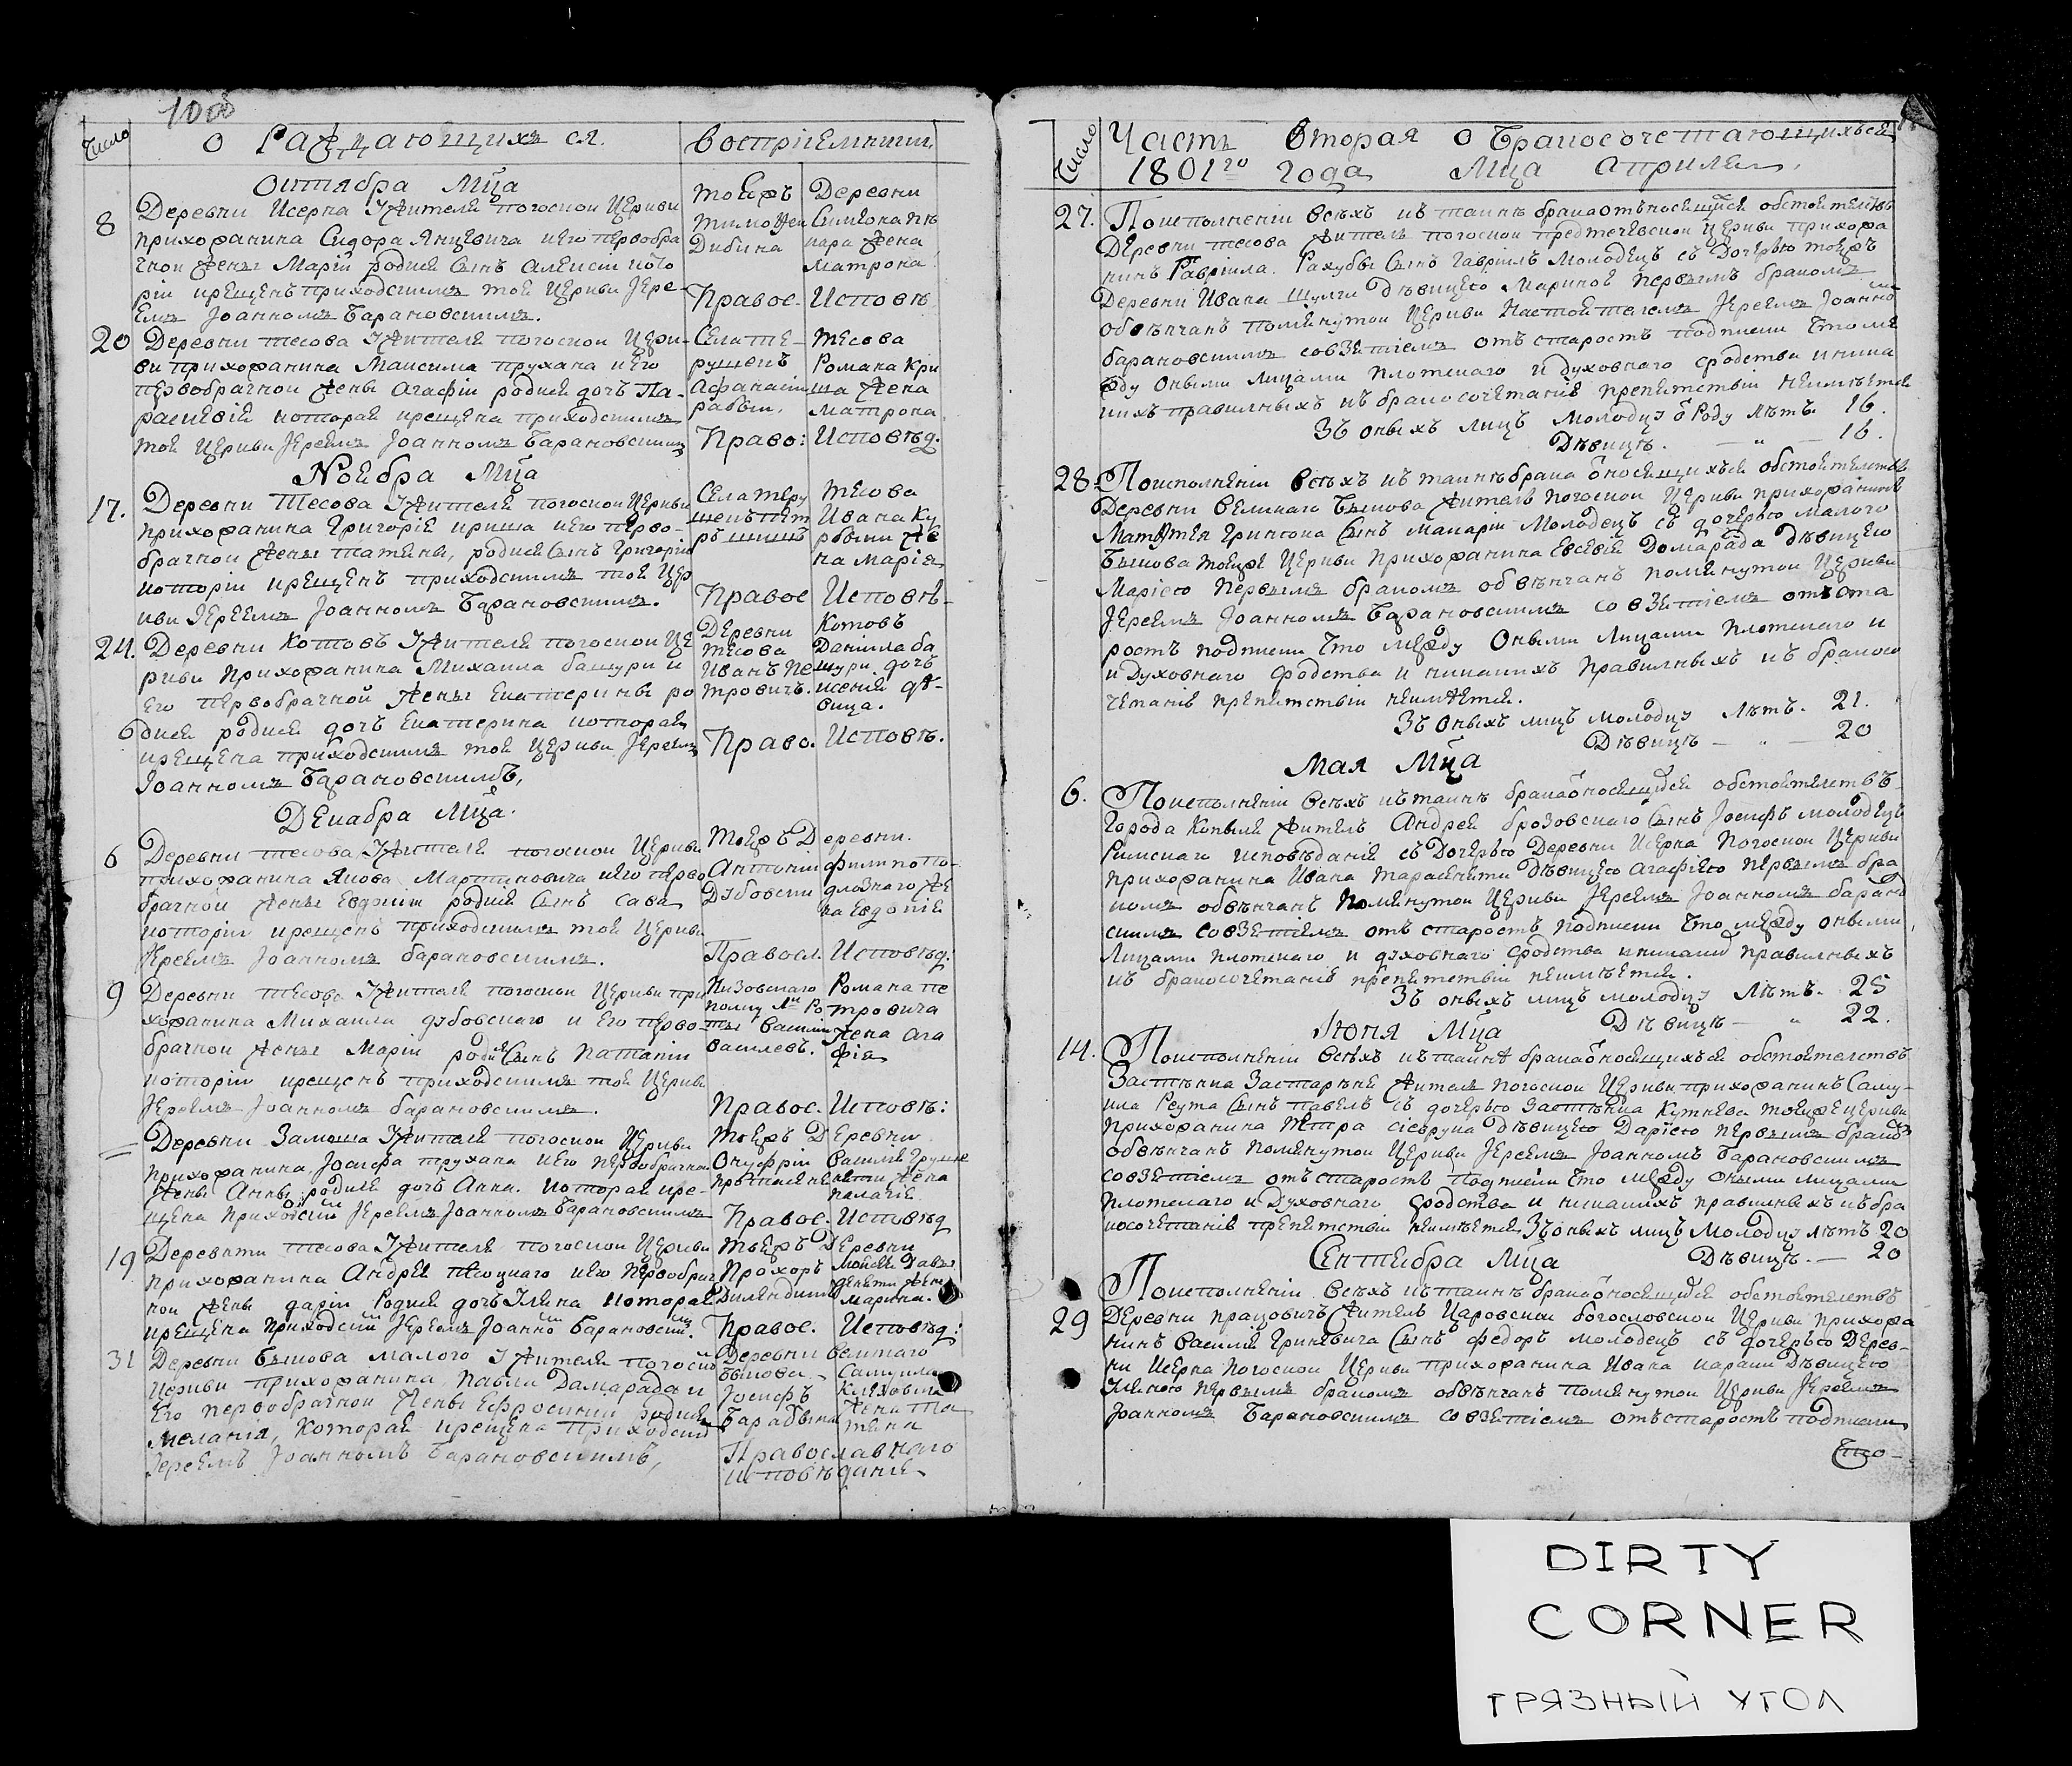 1000
Число
О Раждающихся.
Воспрiемники
Октября Мца
8
Деревни Исерна Жителя погоской Церкви
прихожанина Сидора Янцевича и его первобра
чной жены Марiи родися сынъ Алексiй кото
рiй крещенъ приходскимъ той Церкви Iере-
емъ Iоанномъ Барановскимъ.
тоейжъ
Тимофей
Дибина
Деревни
жена
Матрона
Правос.
Исповѣ.
20
Деревни Тесова Жителя погоской Церк-
ви прихожанина Максима Трухана и его
первобрачной жены Агафiи родися дочъ Па-
раскевiя которая крещена приходскимъ
той Церкви Iереемъ Iоанномъ Барановскимъ
Села Те-
рушецъ
Афанасiй
Тесова
Романа Кри
ша жена
Матрона
Право:
Исповѣд.
Ноября Мца
17.
Деревни Тесова Жителя погоской Церкви
прихожанина Григорiя Криша и его перво-
брачной жены Татяны, родися сынъ Григорiй
которiй крещенъ приходскимъ той Цер
кви Iереемъ Iоанномъ Барановскимъ.
Села Теру
Тесова
Ивана Ку
жѣ
на Марiя
Правос
Исповѣ-
24.
Деревни Котовъ Жителя погоской Це
ркви Прихожанина Михаила Башури и
его первобрачной жены Екатерины ро
дися родися дочъ Екатерина которая
крещена приходскимъ той Церкви Iереемъ
Iоанномъ Барановскимъ,
Деревни
Тесова
Иванъ Пе
тровичъ.
Котовъ
Данiила Ба
шури дочъ
Ксенiя дѣ-
вица.
Право.
Исповѣ.
Декабра Мца.
6
Деревни Тесова Жителя погоской Церкви
прихожанина Якова Мартиновича и его перво
брачной жены Евдокiи родися сынъ Сава
которiй крещенъ приходскимъ той Церкви
Iереемъ Iоанномъ Барановскимъ.
Тоейжъ Деревни.
Антонiй
Дубовски
Филипа По-
длознаго же
на Евдокiя
Правосл.
Исповѣд:
9
Деревни Тесова Жителя погоской Церкви при
хожанина Михаила Дубовскаго и его перво-
брачной жены Марiи родися сынъ Натанiй
которiй крещенъ приходскимъ той Церкви
Iереемъ Iоанномъ Барановскимъ.
Низовскаго
полку
Ро
ты Василiй
Василевъ.
Романа Пе
тровича
жена Ага
фiя
Правос.
Исповѣ:
=
Деревни Замоша Жителя погоской Церкви
прихожанина Iосифа Трухана и его первобрачной
жены Анны родися дочъ Анна. которая кре-
щена приходским Iереемъ Iоанномъ Барановскимъ
Тоейжъ Деревни
Онуфрiй
Василя
жена
Палагiя.
Правос.
Исповѣд
19
Деревнти Тесова Жителя погоской Церкви
прихожанина Андрея и его первобрач
ной жены Дарiи Родися дочъ Улияна Которая
крещена Приходским Iереемъ Iоанном Барановским.
Тоейжъ Деревни
Прохоръ
Мойсея
жена
Марина.
Правос.
Исповѣд:
31
Деревни Бышова Малого Жителя погоской
Церкви прихожанина Павла Дамарада и
Его первобрачной Жены Ефросинии родися
Меланiя, Которая крещена приходским
Iереемъ Iоанномъ Барановскимъ,
Деревни Великаго
Бышова
Iосифъ
Самуила
Жена Та
тяна
Православнаго
исповѣданiя
Число
Часть Вторая о Бракосочетающихъся
1801го года Мца Априля.
27.
Поисполненiи всѣхъ къ таинѣ брака отъносящихся обстоятелствъ
Деревни Тесова житель погоской предтечевской Церкви прихожа
нинъ Гаврiила Рахубы сынъ Гаврiилъ Молодецъ съ Дочерью тоейжъ
Деревни Ивана Шулги Дѣвицею Мариною первымъ бракомъ
обвѣнчанъ помянутой Церкви Настоятелемъ Iереемъ Iоанном
Барановскимъ совзятiемъ отъ старостъ подписки что ме
жду оными Лицами плотскаго и духовнаго сродства и ника
кихъ правилныхъ къ бракосочетанiю препятствiй неимѣется
Зъ оныхъ лицъ Молодцу о Роду лѣтъ. 16.
Дѣвицѣ. — „ — 16.
28.
Поисполненiи всѣхъ къ таинѣ брака относящихъся обстоятелствъ
Деревни Великаго Бышова житель погоской Церкви прихожанинъ
Матфея Гринюка сынъ Макарiй Молодецъ съ дочерью Малого
Бышова тоейже Церкви Прихожанина Евсевiя Домарада дѣвицею
Марiею первымъ бракомъ обвѣнчанъ помянутой Церкви
Iереемъ Iоанномъ Барановскимъ совзятiемъ отъ ста
ростъ подписки что между Оными Лицами Плотскаго и
и Духовнаго сродства и никакихъ правилныхъ къ бракосо
четанiю препятствiй неимѣется.
Зъ оныхъ лицъ молодцу Лѣтъ. 21.
Дѣвицѣ — „ — 20
Мая Мца
6.
Поисполненiи всѣхъ къ таинѣ брака относящихся обстоятелствъ
Города Копыля житель Андрея Брозовскаго сынъ Iосифъ молодецъ
Римскаго исповѣданiя съ Дочерью Деревни Исерна Погоской Церкви
прихожанина Ивана Дѣвицею Агафiею первымъ бра
комъ обвѣнчанъ помянутой Церкви Iереемъ Iоанномъ Баранов
скимъ совзятiемъ отъ старостъ подписки что между оными
лицами плотскаго и духовнаго сродства и никаких правилныхъ
къ бракосочетанiю препятствiй неимѣется.
Зъ оныхъ лицъ молодцу Лѣтъ. 25
Дѣвицѣ — „ 22.
Iюня Мца
14.
Поисполненiи всѣхъ къ таинѣ брака относящихъся обстоятелствъ
Застѣнка Застарѣня житель погоской Церкви прихожанинъ Саму-
ила Реута сынъ Павелъ съ дочерью застѣнка Кутнева тоейже Церкви
прихожанина Петра Севрука дѣвицею Дарiею первымъ браком
обвѣнчанъ помянутой Церкви Iереемъ Iоанномъ Барановскимъ
совзятiемъ отъ старостъ подписки что между оными лицами
плотскаго и духовнаго сродства и никакихъ правилныхъ къ бра
косочетанiю препятствiй неимѣется. Зъ оныхъ лицъ Молодцу лѣтъ 20
Дѣвицѣ. — 20
Сентября Мца
29
Поисполненiи всѣхъ къ таинѣ брака относящихся обстоятелствъ
Деревни Працовичъ житель Царовской богословской Церкви прихожа
нинъ Василiя Гриневича сынъ Федоръ молодецъ съ дочерью Дерев-
ни Исерна Погоской Церкви прихожанина Ивана Караши Дѣвицею
Улияною первымъ бракомъ обвѣнчанъ помянутой Церкви Iереемъ
Iоанномъ Барановскимъ совзятiемъ отъ старостъ подписки
Что-
DIRTY
CORNER
ГРЯЗНЫЙ УГОЛ